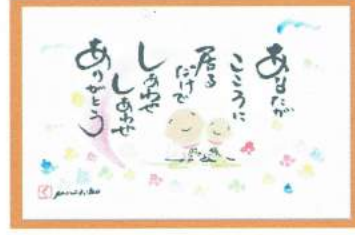 あなたが
こころに
居る
だけで
しあわせ
しあわせ
ありがとう